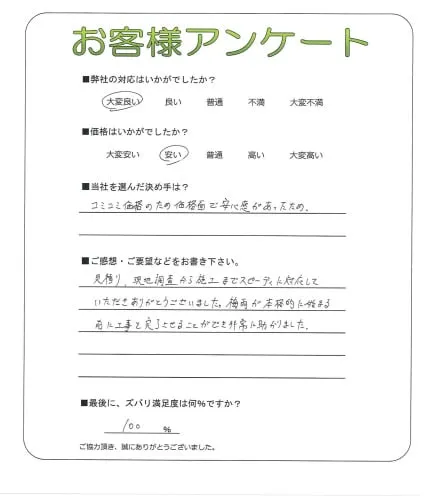 お客様アンケート
■弊社の対応はいかがでしたか?
大変良い 良い 普通 不満 大変不満
■価格はいかがでしたか?
大変安い 安い 普通 高い 大変高い
■当社を選んだ決め手は?
コミコミ価格のため価格面で安心感があったため。
■ご感想・ご要望などをお書き下さい。
見積り、現地調査から施工までスピーディに対応して
いただきありがとうございました。梅雨が本格的に始まる
前に工事を完了させることができ非常に助かりました。
■最後に、ズバリ満足度は何%ですか?
100 %
ご協力頂き、誠にありがとうございました。